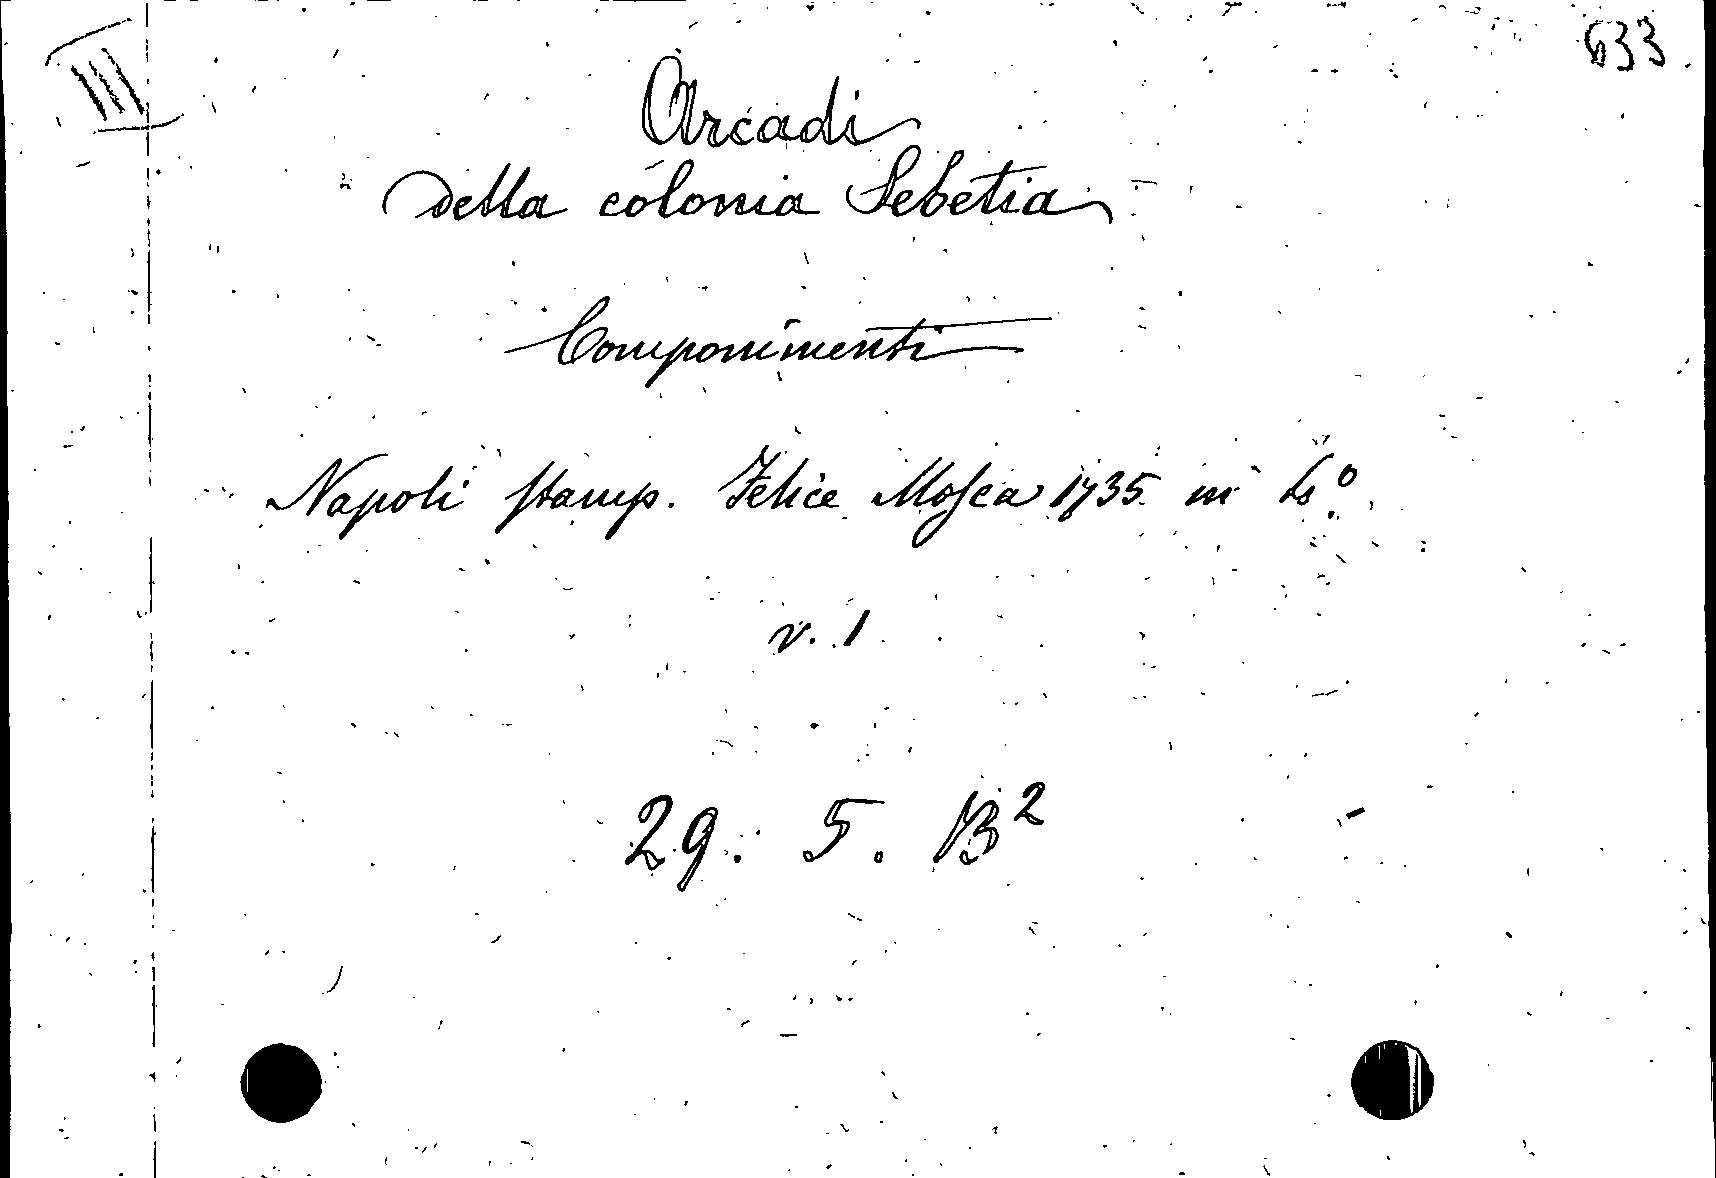 III
633.
Arcadi
della colonia Sebetia
Componimenti
Napoli stamp. Felice Mosca 1735. in 4.º
v. 1
29. 5. B²